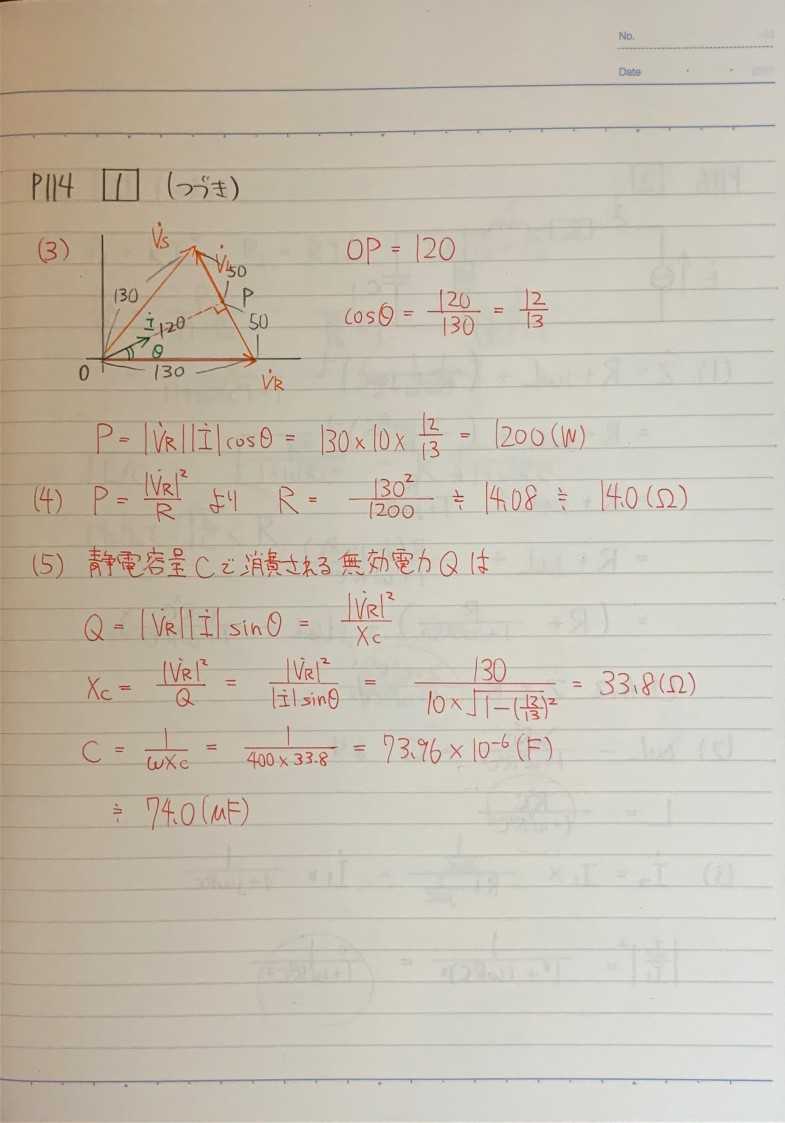 No.
Date
P114 1 (つづき)
(3) V̇s V̇L 50 P 130 İ 120 50 θ 0 130 V̇R
OP = 120
cosθ = 120/130 = 12/13
P = |V̇R||İ|cosθ = 130×10×12/13 = 1200(W)
(4) P = |V̇R|²/R より R = 130²/1200 ≒ 14.08 ≒ 14.0(Ω)
(5) 静電容量Cで消費される無効電力Qは
Q = |V̇R||İ|sinθ = |V̇R|²/Xc
Xc = |V̇R|²/Q = |V̇R|²/|İ|sinθ = 130/10×√1-(12/13)² = 33.8(Ω)
C = 1/ωXc = 1/400×33.8 = 73.96×10⁻⁶(F)
≒ 74.0(μF)